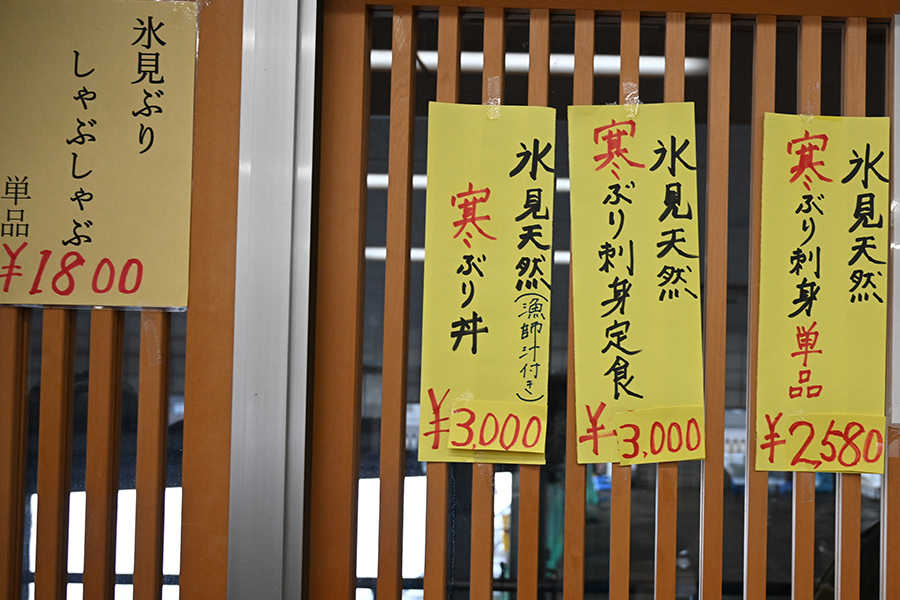 氷見ぶり
しゃぶしゃぶ
単品
¥1800
氷見天然(漁師汁付き)
寒ぶり丼
¥3,000
氷見天然
寒ぶり刺身定食
¥3,000
氷見天然
寒ぶり刺身単品
¥2,580